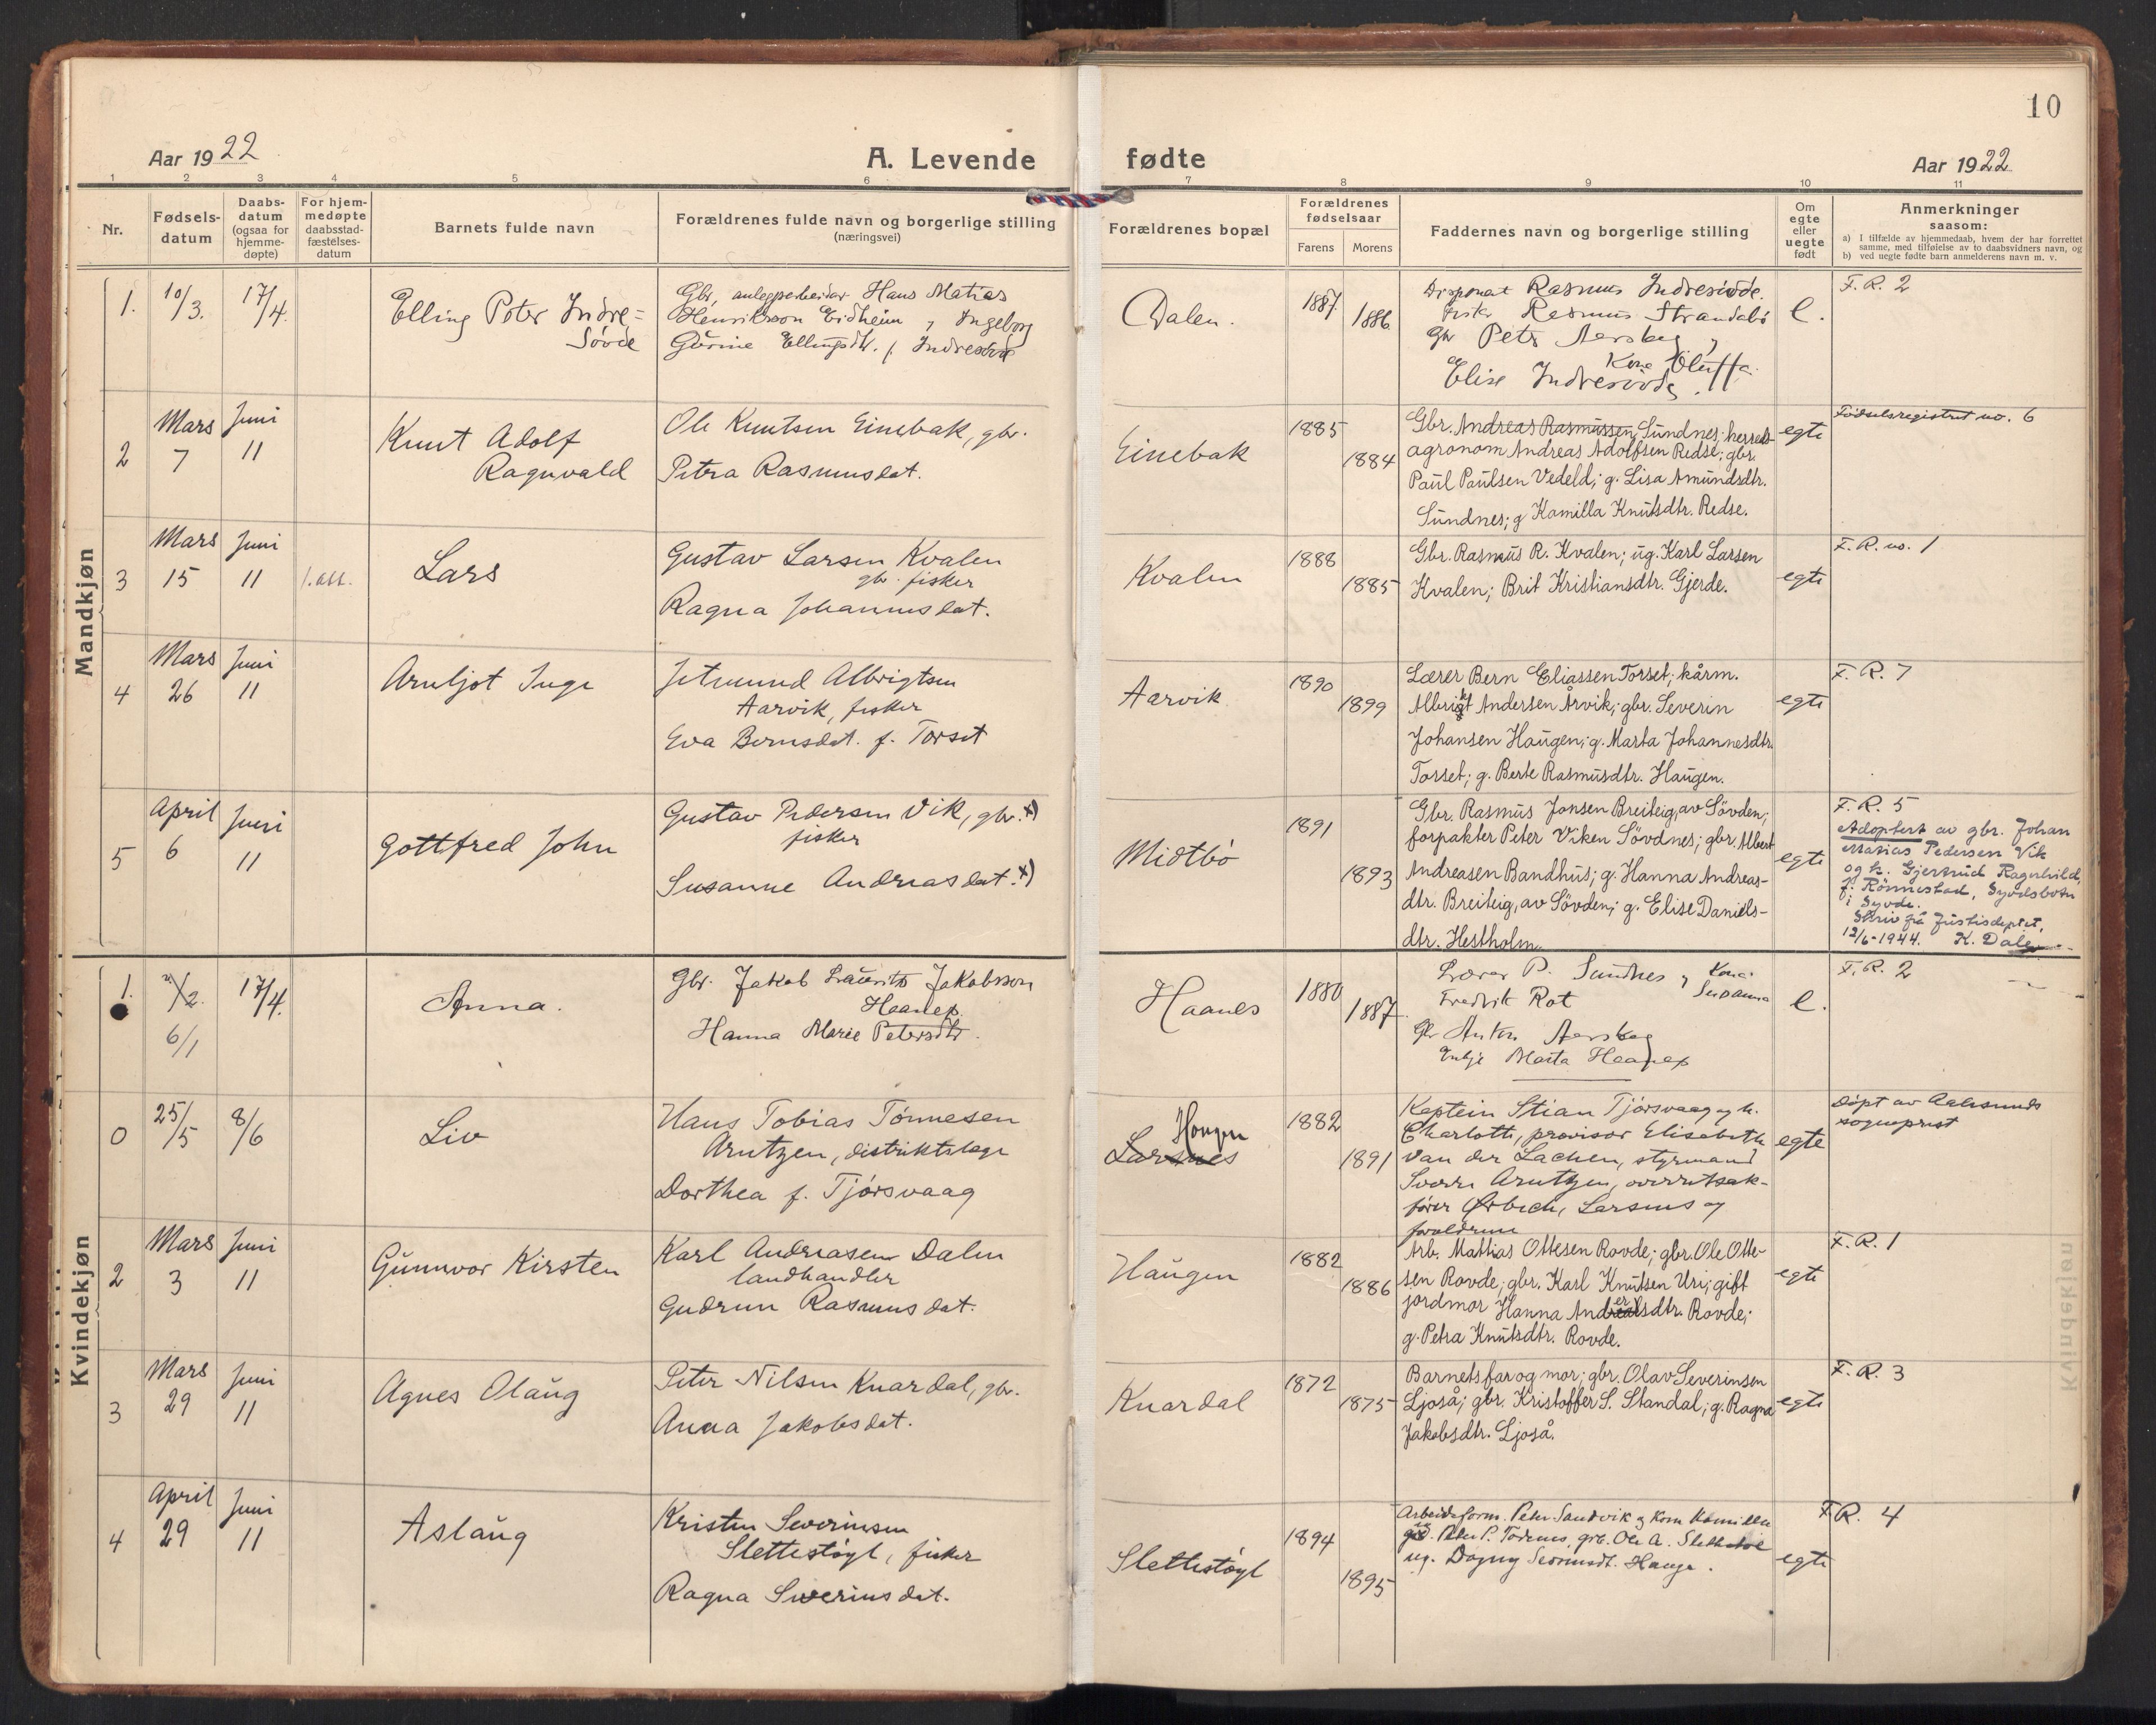 10
Aar 1922
A. Levende
fødte
Aar 1922
1 2 3 4 5 6 7 8 9 10 11
Nr.
Fødsels-
datum
Daabs-
datum
(ogsaa for
hjemme-
døpte)
For hjem-
medøpte
daabsstad-
fæstelses-
datum
Barnets fulde navn
Forældrenes fulde navn og borgerlige stilling
(næringsvei)
Forældrenes bopæl
Forældrenes
fødselsaar
Farens Morens
Faddernes navn og borgerlige stilling
Om
egte
eller
uegte
født
Anmerkninger
saasom:
a) I tilfælde av hjemmedaab, hvem der har forrettet
samme, med tilføielse av to daabsvidners navn, og
b) ved uegte fødte barn anmelderens navn m. v.
Mandkjøn
1. 10/3. 17/4.
Elling Peter Indre=
Søvde
Gbr, anlegsarbeider Hans Matias
Henriksson Eidheim, Ingeborg
Gurine Ellingsdtr. f. Indresøvde
Dalen.
1887. 1886
Disponent Rasmus Indresøvde.
fisker Rasmus Strandabø
Gbr Peter Aarskog,
Kone Oluffa.
Elise Indresøvde.
e.
F.R. 2
2 Mars 7 Juni 11
Knut Adolf
Ragnvald
Ole Knutsen Einebak, gbr.
Petra Rasmusdat.
Einebak
1885 1884
Gbr. Andreas Rasmussen Sundnes; herreds-
agronom Andreas Adolfsen Redse; gbr.
Paul Paulsen Vedeld; g. Lisa Amundsdtr.
Sundnes; g Kamilla Knutsdtr. Redse.
egte
Fødselsregistret no. 6
3 Mars 15 Juni 11
Lars
Gustav Larsen Kvalen
gbr. fisker
Ragna Johannesdat.
Kvalen
1888 1885
Gbr. Rasmus R. Kvalen; ug. Karl Larsen
Kvalen; Brit Kristiansdtr. Gjerde.
egte
F.R. no. 1
4 Mars 26 Juni 11
Arnljot Inge
Jetmund Albrigtsen
Aarvik, fisker
Eva Bernsdat. f. Torset
Aarvik
1890 1899
Lærer Bern Eliassen Torset; kårm.
Albrigt Andersen Årvik; gbr. Severin
Johansen Haugen; g. Marta Johannesdtr.
Torset; g. Berte Rasmusdtr. Haugen.
egte
F.R. 7
5 April 6 Juni 11
Gottfred John
Gustav Pedersen Vik, gbr. x)
fisker
Susanne Andreasdat. x)
Midtbø
1891 1893
Gbr. Rasmus Jonsen Breiteig, av Søvden;
forpakter Peter Viken Søvdnes; gbr. Albert
Andreasen Bandhus; g. Hanna Andreas-
dtr. Breiteig, av Søvden; g. Elise Daniels-
dtr. Hestholm.
egte
F.R. 5
Adoptert av gbr. Johan
Matias Pedersen Vik
og h. Gjertrud Ragnhild,
f. Rønnestad, Syvdsbotn
i Syvde.
Skriv frå Justisdeptet,
12/6-1944. K. Dale
Kvindekjøn
1. 6/1 17/4.
Anna.
Gbr. Jakob Laurits Jakobsson
Haanes.
Hanna Marie Petersdtr.
Haanes
1880 1887
Lærer P. Sundnes, Kone
Susanna
Fredrik Rot
Gbr Anton Aarskog
Enkje Marta Haanes
e.
F.R. 2
0 25/5 8/6
Liv
Hans Tobias Tønnesen
Arntzen, distriktslæge
Dorthea f. Tjørsvaag
Haugen
Larsnes
1882 1891
Kaptein Stian Tjørsvaag og h.
Charlotte, provisor Elisabeth
van der Lachen, styrmand
Sverre Arntzen, overretssak-
fører Ørbech, Larsnes og
forældrene
egte
Døpt av Aalesunds
sogneprest
2 Mars 3 Juni 11
Gunnvor Kirsten
Karl Andreasen Dalen
landhandler
Gudrun Rasmusdat.
Haugen
1882 1886
Arb. Mattias Ottesen Rovde; gbr. Ole Otte-
sen Rovde; gbr. Karl Knutsen Uri; gift
jordmor Hanna Andersdtr. Rovde;
g. Petra Knutsdtr. Rovde.
egte
F.R. 1
3 Mars 29 Juni 11
Agnes Olaug
Peter Nilsen Knardal, gbr.
Anna Jakobsdat.
Knardal
1872 1875
Barnets far og mor; gbr. Olav Severinsen
Ljoså; gbr. Kristoffer S. Standal; g. Ragna
Jakobsdtr. Ljoså.
egte
F.R. 3
4 April 29 Juni 11
Aslaug
Kristen Severinsen
Slettestøyl, fisker
Ragna Severinsdat.
Slettestøyl
1894 1895
Arbeidsform. Peter Sandvik og kone Kamilla
Peter P. Todnes, grb. Ole A. Slettestøl
ug. Dagny Severinsdt. Hauge.
egte
F.R. 4